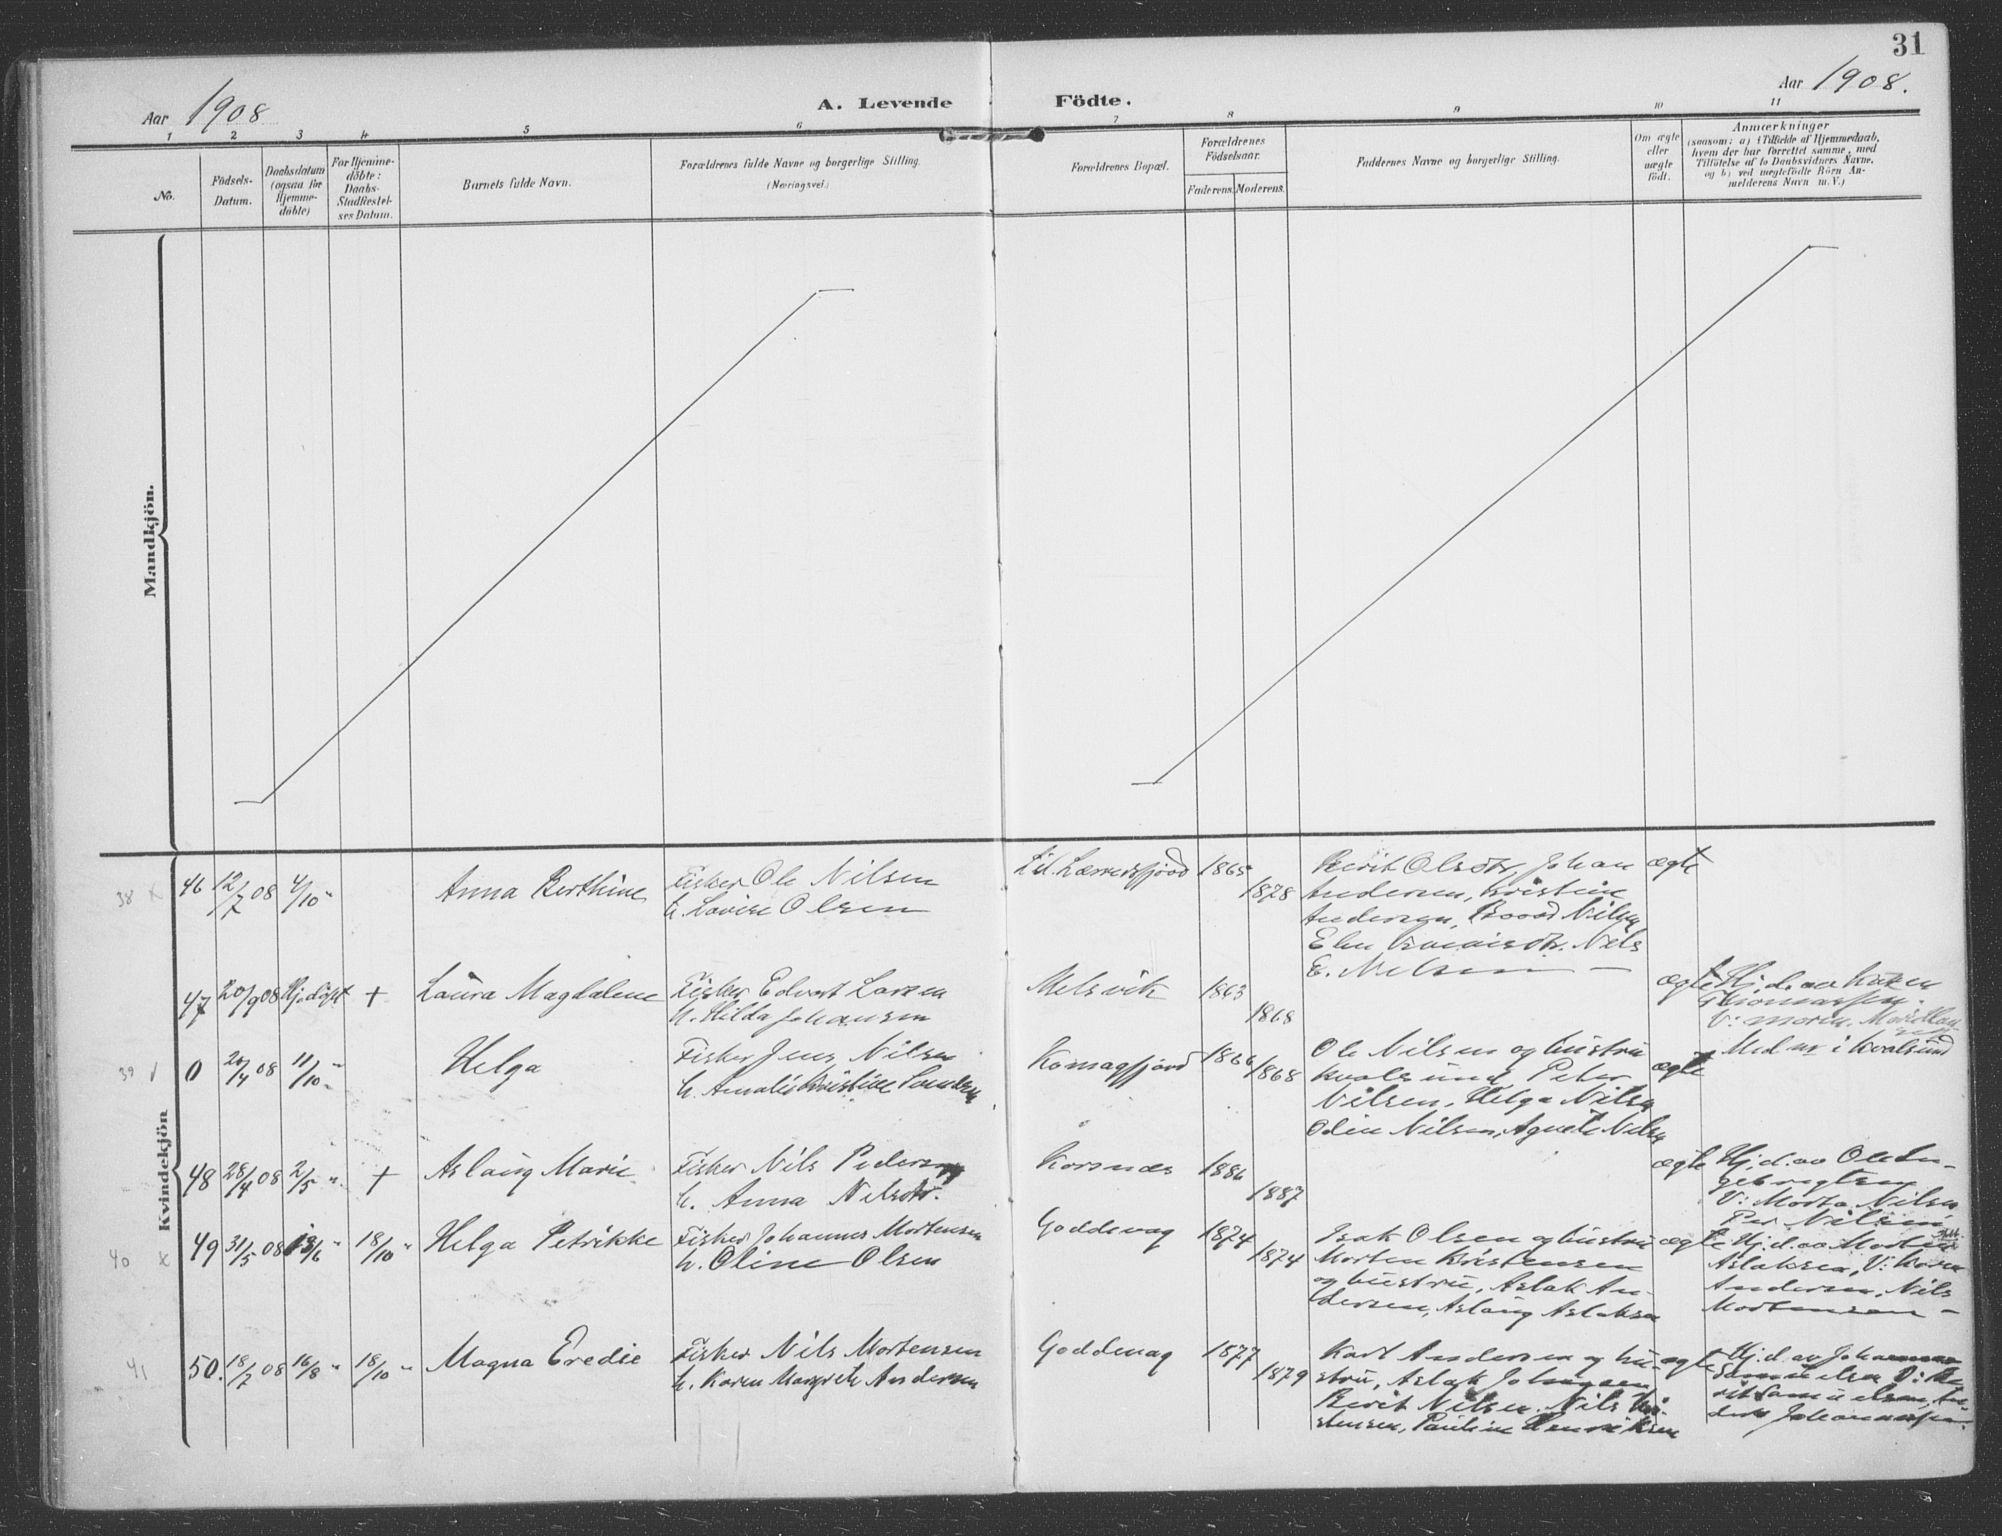 31
Aar 1908
A. Levende Födte.
Aar 1908.
1 2 3 4 5 6 7 8 9 10 11
No.
Födsels-
Datum.
Daabsdatum
(ogsaa for
Hjemme-
döbte)
For Hjemme-
döbte:
Daabs-
Stadfæstel-
ses Datum.
Barnets fulde Navn.
Forældrenes fulde Navne og borgerlige Stilling.
(Næringsvei.)
Forældrenes Bopæl.
Forældrenes
Födselsaar.
Faderens. Moderens.
Faddernes Navne og borgerlige Stilling.
Om ægte
eller
uægte
födt.
Anmærkninger
(saasom: a) i Tilfælde af Hjemmedaab,
hvem der har forrettet samme, med
Tilföielse af to Daabsvidners Navne,
og b) ved uægtefödte Börn An-
melderens Navn m. V.)
Mandkjön.
Kvindekjön
38 x 46 12/7 08 4/10 "
Anna Berthine
Fisker Ole Nilsen
h. Lovise Olsen
Lil. Lærresfjord 1865
1878
Berit Olsdtr, Johan
Andersen, Kristine
Andersen, Nilsen
Nils
E. Nilsen —
ægte
47 20/9 08 Hj.döpt +
Laura Magdalene
Fisker Edvart Larsen
h. Hilda Johansen
Melsvik 1863
1868
ægte
Hj. d. av
Thomassen.
V: moren,
39 0 20/4 08 11/10 "
Helga
Fisker Jens Nilsen
h. Amalie Kristine
Komagfjord 1866
1868
Ole Nilsen og hustru
Kvalsund, Peter
Nilsen, Helga Nilsen
Odin Nilsen, Agnete Nilsen
ægte
Med nr i Kvalsund
48 28/4 08 2/5 " +
Aslaug Marie
Fisker Nils Pedersen
h. Anna Nilsdtr.
Korsnes 1886
1887
ægte
Hj. d. av Ole In-
gebrigtsen
V: Nilsen
Per Nilsen
40 x 49 31/5 08 13/6 " 18/10 "
Helga Petrikke
Fisker Johannes Mortensen
h. Oline Olsen
Goddevag 1874
1874
Isak Olsen og hustru
Morten Kristensen
og hustru, Aslak An-
dersen, Aslaug Aslaksen
ægte
Hj. d. av Morten
Aslaksen, V: Karen
Andersen, Nils
Mortensen —
41 50. 18/7 08 16/8 " 18/10 "
Magna Eredie
Fisker Nils Mortensen
h. Karen Margrete Andersen
Goddevag 1877
1879
Karl Andersen og hu-
stru, Aslak Johansen
Berit Nilsen, Nils Kri-
stensen, Pauline Henriksen
ægte
Hj. d. av
Samuelsen V: Be-
rit Samuelsen, An-
ders Johannessen